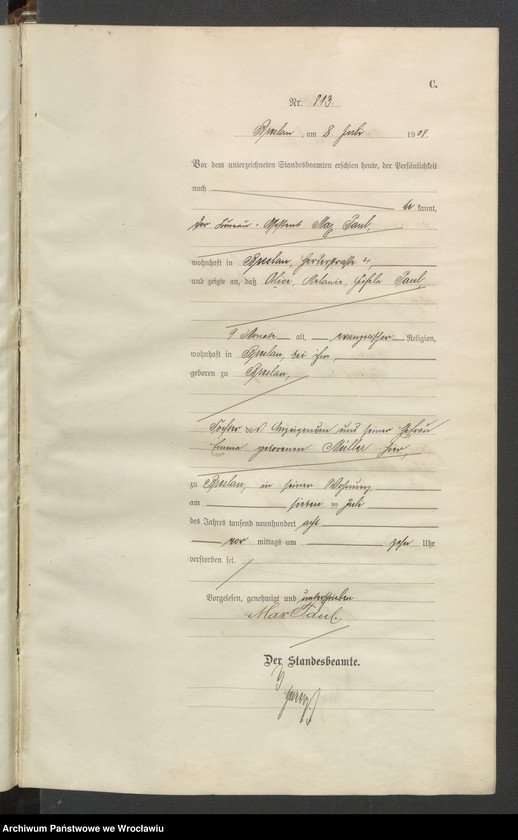 C.
Nr. 813.
Breslau, am 8. Juli 1908.
Vor dem unterzeichneten Standesbeamten erschien heute, der Persönlichkeit
nach
be kannt,
der Bureau-Assistent Max Paul,
wohnhaft in Breslau,
und zeigte an, daß Alice, Melanie, Gisela Paul,
9 Monate alt, evangelischer Religion,
wohnhaft in Breslau, bei ihm,
geboren zu Breslau,
Tochter des Anzeigenden und seiner Ehefrau
Emma geborenen Müller hier,
zu Breslau, in seiner Wohnung
am sieben ten Juli
des Jahres tausend neunhundert acht
vor mittags um zehn Uhr
verstorben sei.
Vorgelesen, genehmigt und unterschrieben
Max Paul.
Der Standesbeamte.
Archiwum Państwowe we Wrocławiu